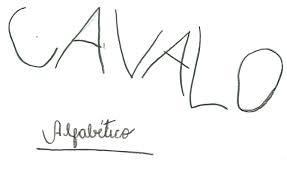 CAVALO
Alfabético